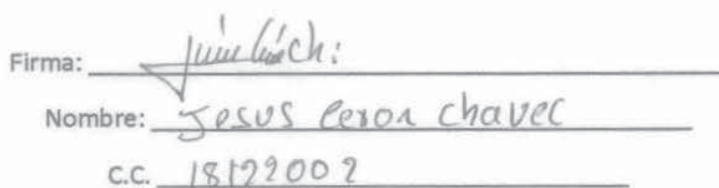 Firma:
Nombre: Jesus Ceron chavec
C.C. 18122002